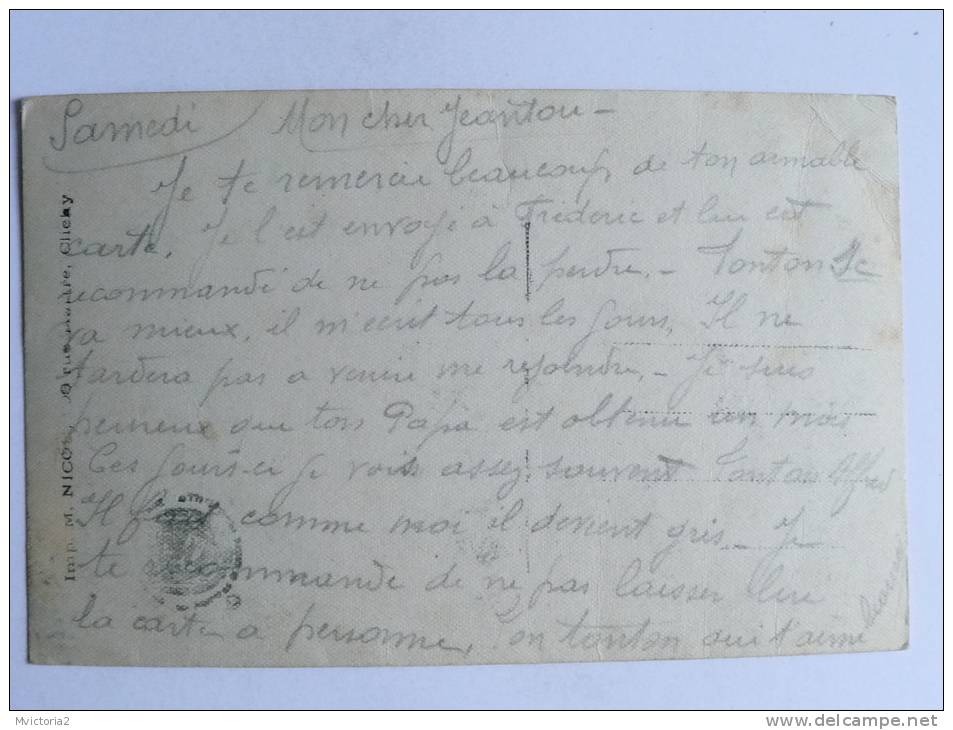 Samedi Mon cher Jeantou -
Je te remercie beaucoup de ton aimable
carte. Je l'est envoyé à Fréderic et lui est
recommandé de ne pas la perdre. - Tonton
va mieux, il m'ecrit tous les jours. Il ne
tardera pas a venir me rejoindre. - Je suis
heureux que ton Papa est obtenu un mois
Ces jours-ci je vois assez souvent Tonton Alfred
Il comme moi il devient gris. - Je
te recommande de ne pas laisser lire
la carte a personne, Ton tonton qui t'aime
Imp. M. NICO Clichy
Mvictoria2
www.delcampe.net